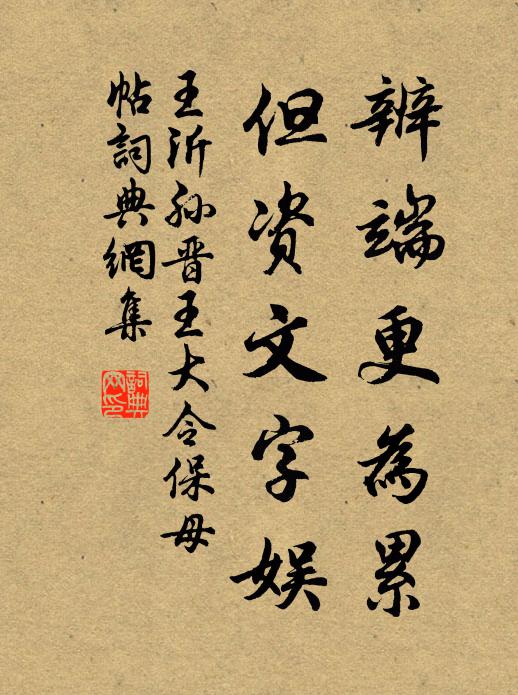 辨端更為累
但资文字娱
王沂孙晋王大令保母
帖詞典網集
詞典
网印